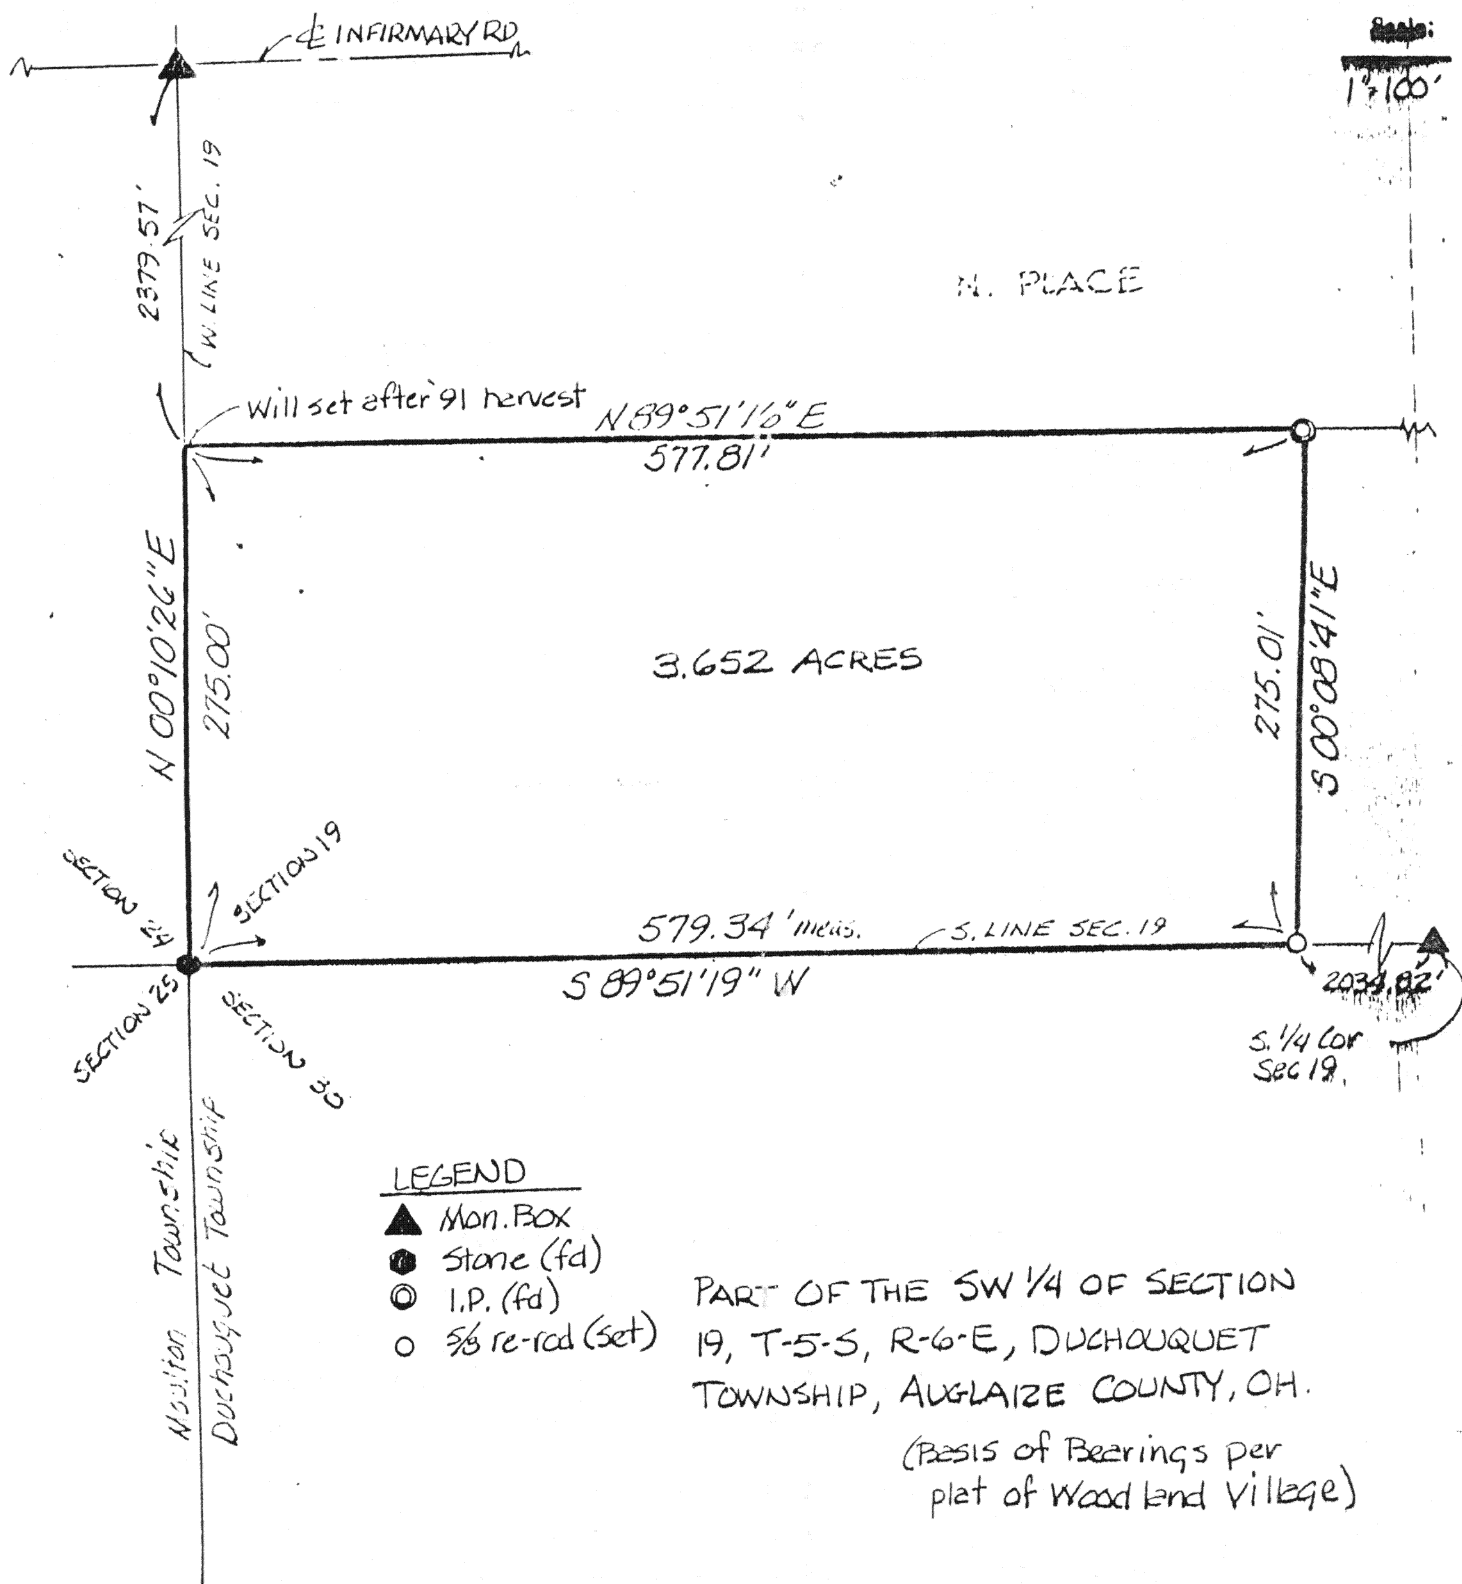 ℄ INFIRMARY RD
Scale:
1"=100'
2379.57'
W. LINE SEC. 19
N. PLACE
Will set after '91 harvest
N 89°51'16" E
577.81'
N 00°10'26" E
275.00'
3.652 ACRES
275.01'
S 00°08'41" E
SECTION 24
SECTION 19
579.34' meas.
S. LINE SEC. 19
S 89°51'19" W
2034.82'
SECTION 25
SECTION 30
S. 1/4 Cor
Sec 19.
Moulton Township
Duchouquet Township
LEGEND
Mon. Box
Stone (fd)
I.P. (fd)
5/8 re-rod (set)
PART OF THE SW 1/4 OF SECTION
19, T-5-S, R-6-E, DUCHOUQUET
TOWNSHIP, AUGLAIZE COUNTY, OH.
(Basis of Bearings per
plat of Woodland Village)